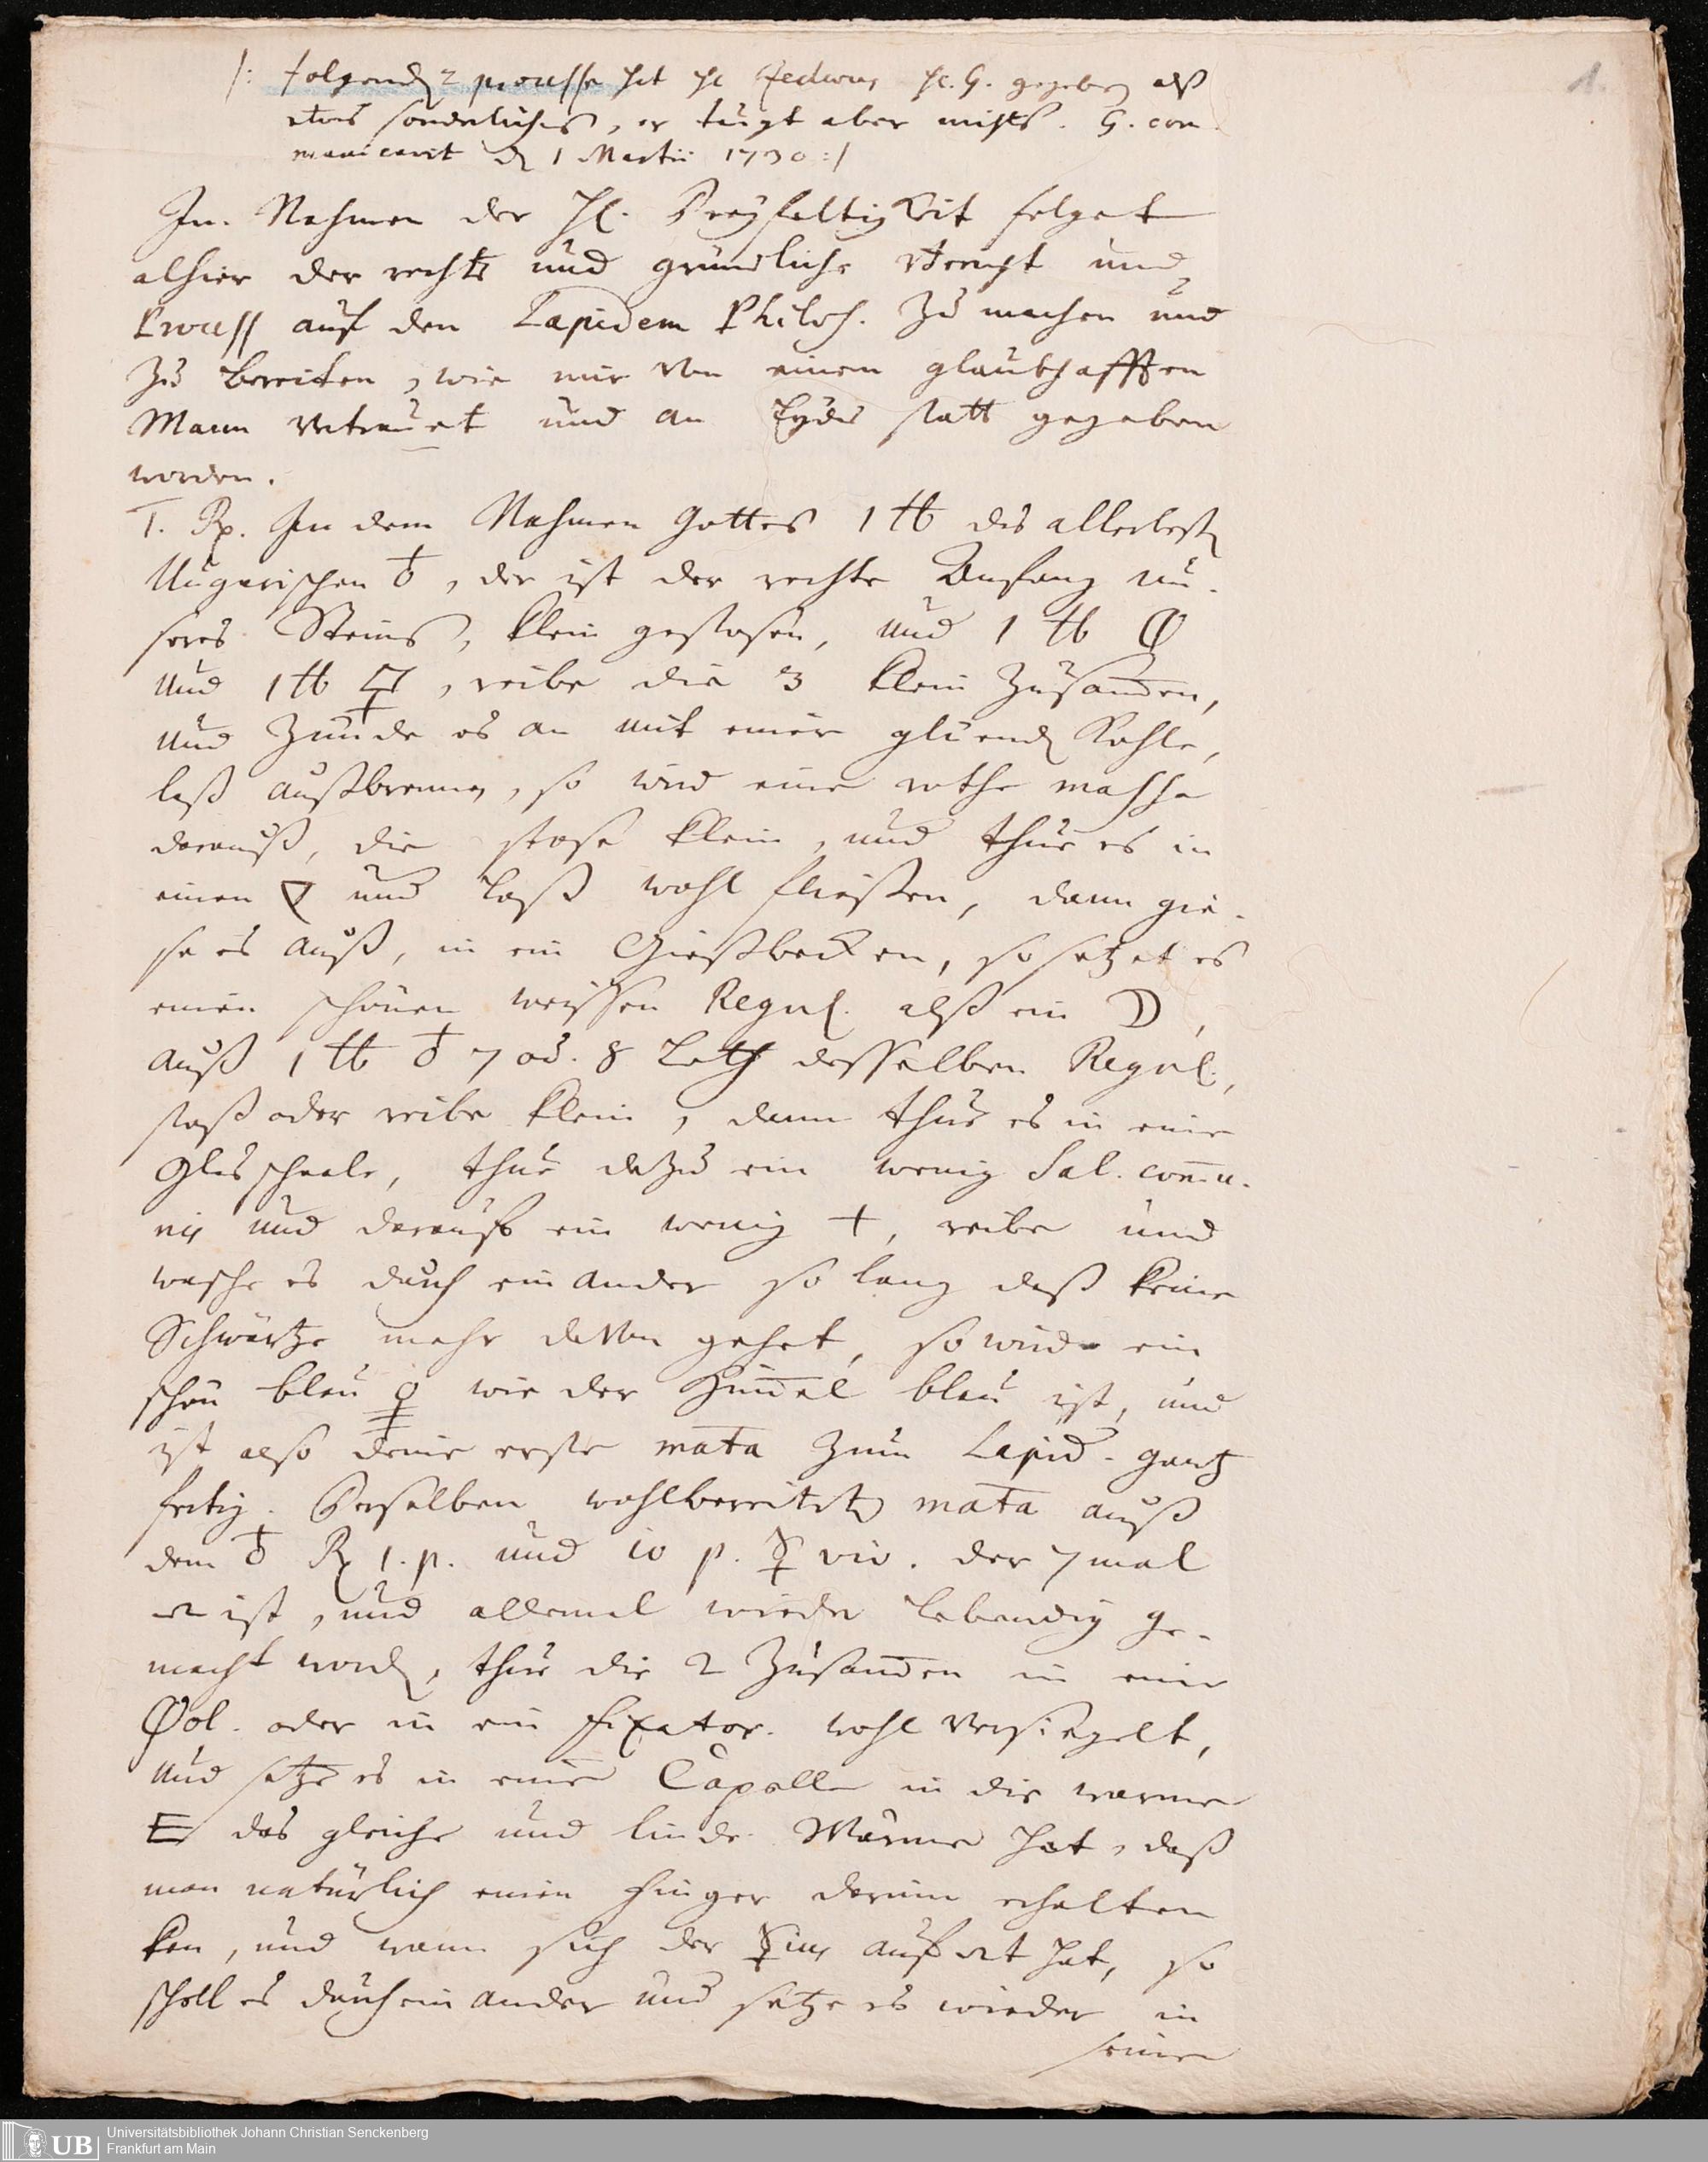 /: folgende 2 processe hat H. H. G. gegeben alß
etwas sonderliches, er taugt aber nichts. G. com
municavit d. 1 Martii 1730 :/
1.
In Nahmen der Hl. Dreyfaltigkeit folget
alhier der rechte und gründliche und
Process auf den Lapidem Philos. zu machen und
zu bereiten, wie mir von einem glaubhafften
Mann vertrauet und an Eydes statt gegeben
worden.
1. Rp. In dem Nahmen Gottes 1 ℔ des allerbesten
Ungarischen ♁, der ist der rechte Anfang un-
seres Steins, klein gestosen, und 1 ℔
und 1 ℔, reibe die 3 klein zusam̄en,
und zünde es an mit einer glüenden Kohle,
laß außbrennen, so wird eine rothe massa
darauß, die stose klein, und thue es in
einen 🜄 und laß wohl fliesßen, dann gie-
se es auß, in ein Gießbecken, so setzet es
einen schönen weissen Regul. alß ein ☽,
auß 1 ℔ ♁ 7 od. 8 Loth desselben Regul.,
stoß oder reibe klein, dann thue es in eine
Glasschaale, thue dazu ein wenig Sal. com̄u-
nis und darauf ein wenig +, reibe und
wasche es durch einander so lang daß keine
Schwärtze mehr davon gehet, so wird ein
schön blau wie der Him̄el blau ist, und
ist also deine erste mata zum Lapid. gantz
fertig. Derselben wohlbereiteten mata auß
dem ♁ Rp 1. p. und 10 p. ☿ viv. der 7 mal
ist, und allemal wieder lebendig ge-
macht worden, thue die 2 zusam̄en in eine
ol. oder in ein fixator. wohl versiegelt,
und setze es in eine Capelle in die warme
das gleiche und linde Wärme hat, daß
man natürlich einen Finger darinn erhalten
kan, und wann sich der ☿ius auf hat, so
es durcheinander und setze es wieder in
seine
UB Universitätsbibliothek Johann Christian Senckenberg
Frankfurt am Main